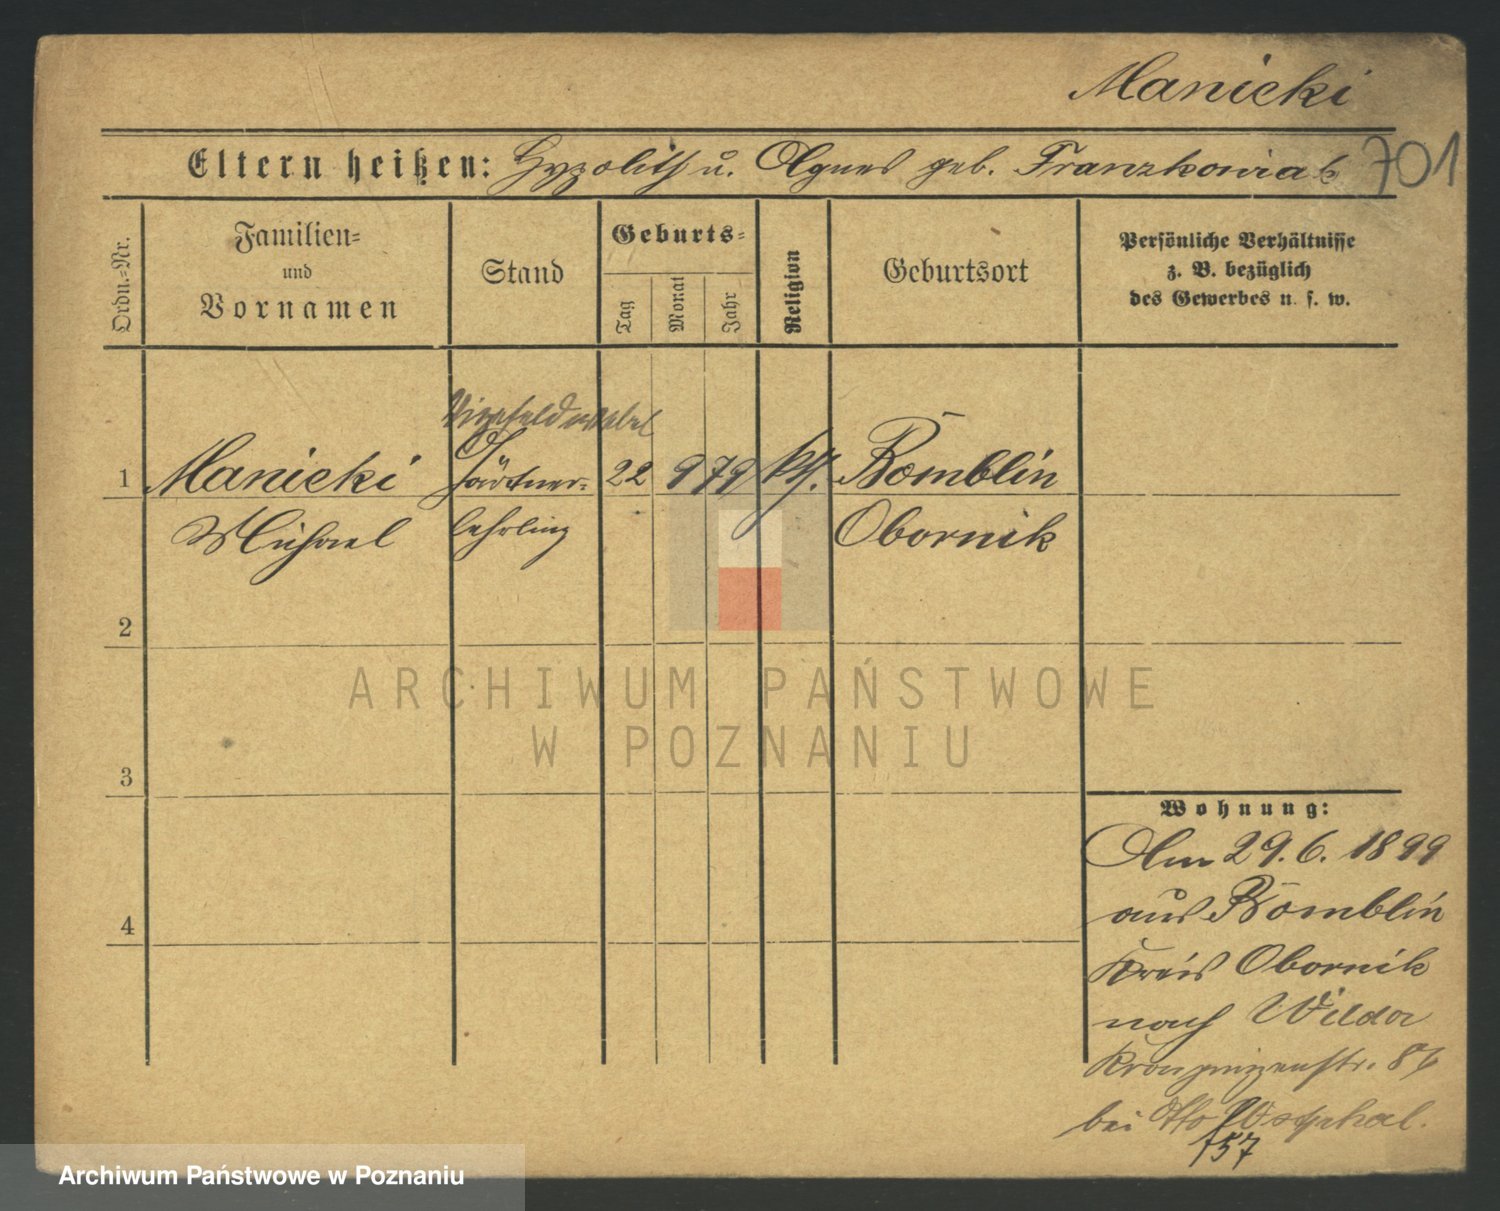 Manicki
Eltern heißen: Hypolith u. Agnes geb. Franzkowiak 701
Ordn.-Nr.
Familien-
und
Vornamen
Stand
Geburts-
Tag
Monat
Jahr
Religion
Geburtsort
Persönliche Verhältnisse
z. B. bezüglich
des Gewerbes u. s. w.
Vizefeldwebel
1 Manicki Gärtner- 22 9 79 kth. Bomblin
Michael lehrling Obornik
2
3
4
ARCHIWUM PAŃSTWOWE
W POZNANIU
Wohnung:
Am 29. 6. 1899
aus Bomblin
Kreis Obornik
nach Wilda
Kronprinzenstr. 86
bei Otto Westphal.
157
Archiwum Państwowe w Poznaniu